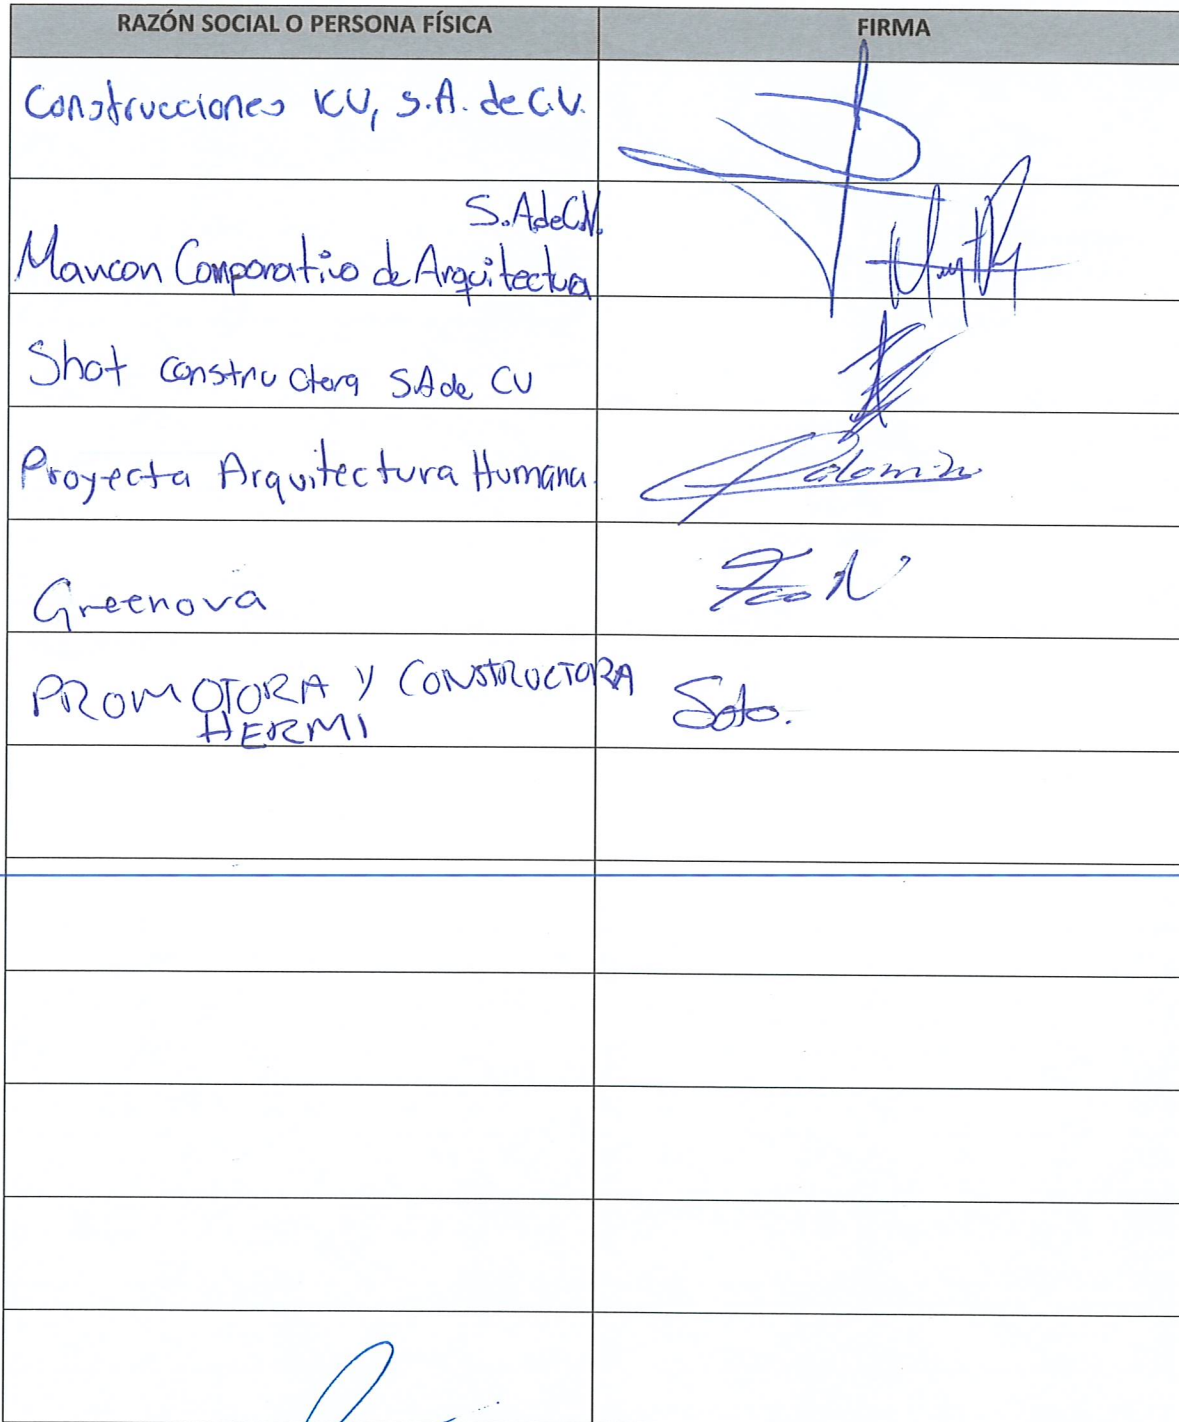 RAZÓN SOCIAL O PERSONA FÍSICA
FIRMA
Construcciones KV, S.A. de C.V.
S.A de C.V.
Mancon Comporativo de Arquitectura
Shot constructora SA de CV
Proyecta Arquitectura Humana.
Greenova
PROMOTORA Y CONSTRUCTORA
HERMI
Soto.